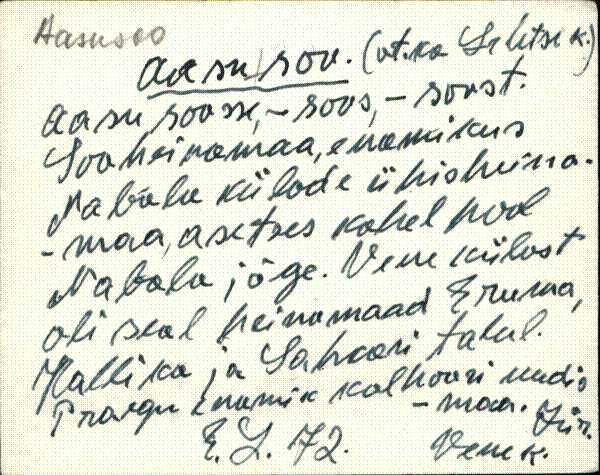 Aasusoo
aasu|soo. (vt. ka Sehtse k.)
aasu soosse, - soos, - soost.
Sooheinamaa, enamikus
Nabala külade ühisheina-
- maa, asetses kahel pool
Nabala jõge. Vene külast
oli seal heinamaad
Hallika ja talul.
Praegu enamik kolhoosi
- maa. Jür.
E. L. 72. Vene k.